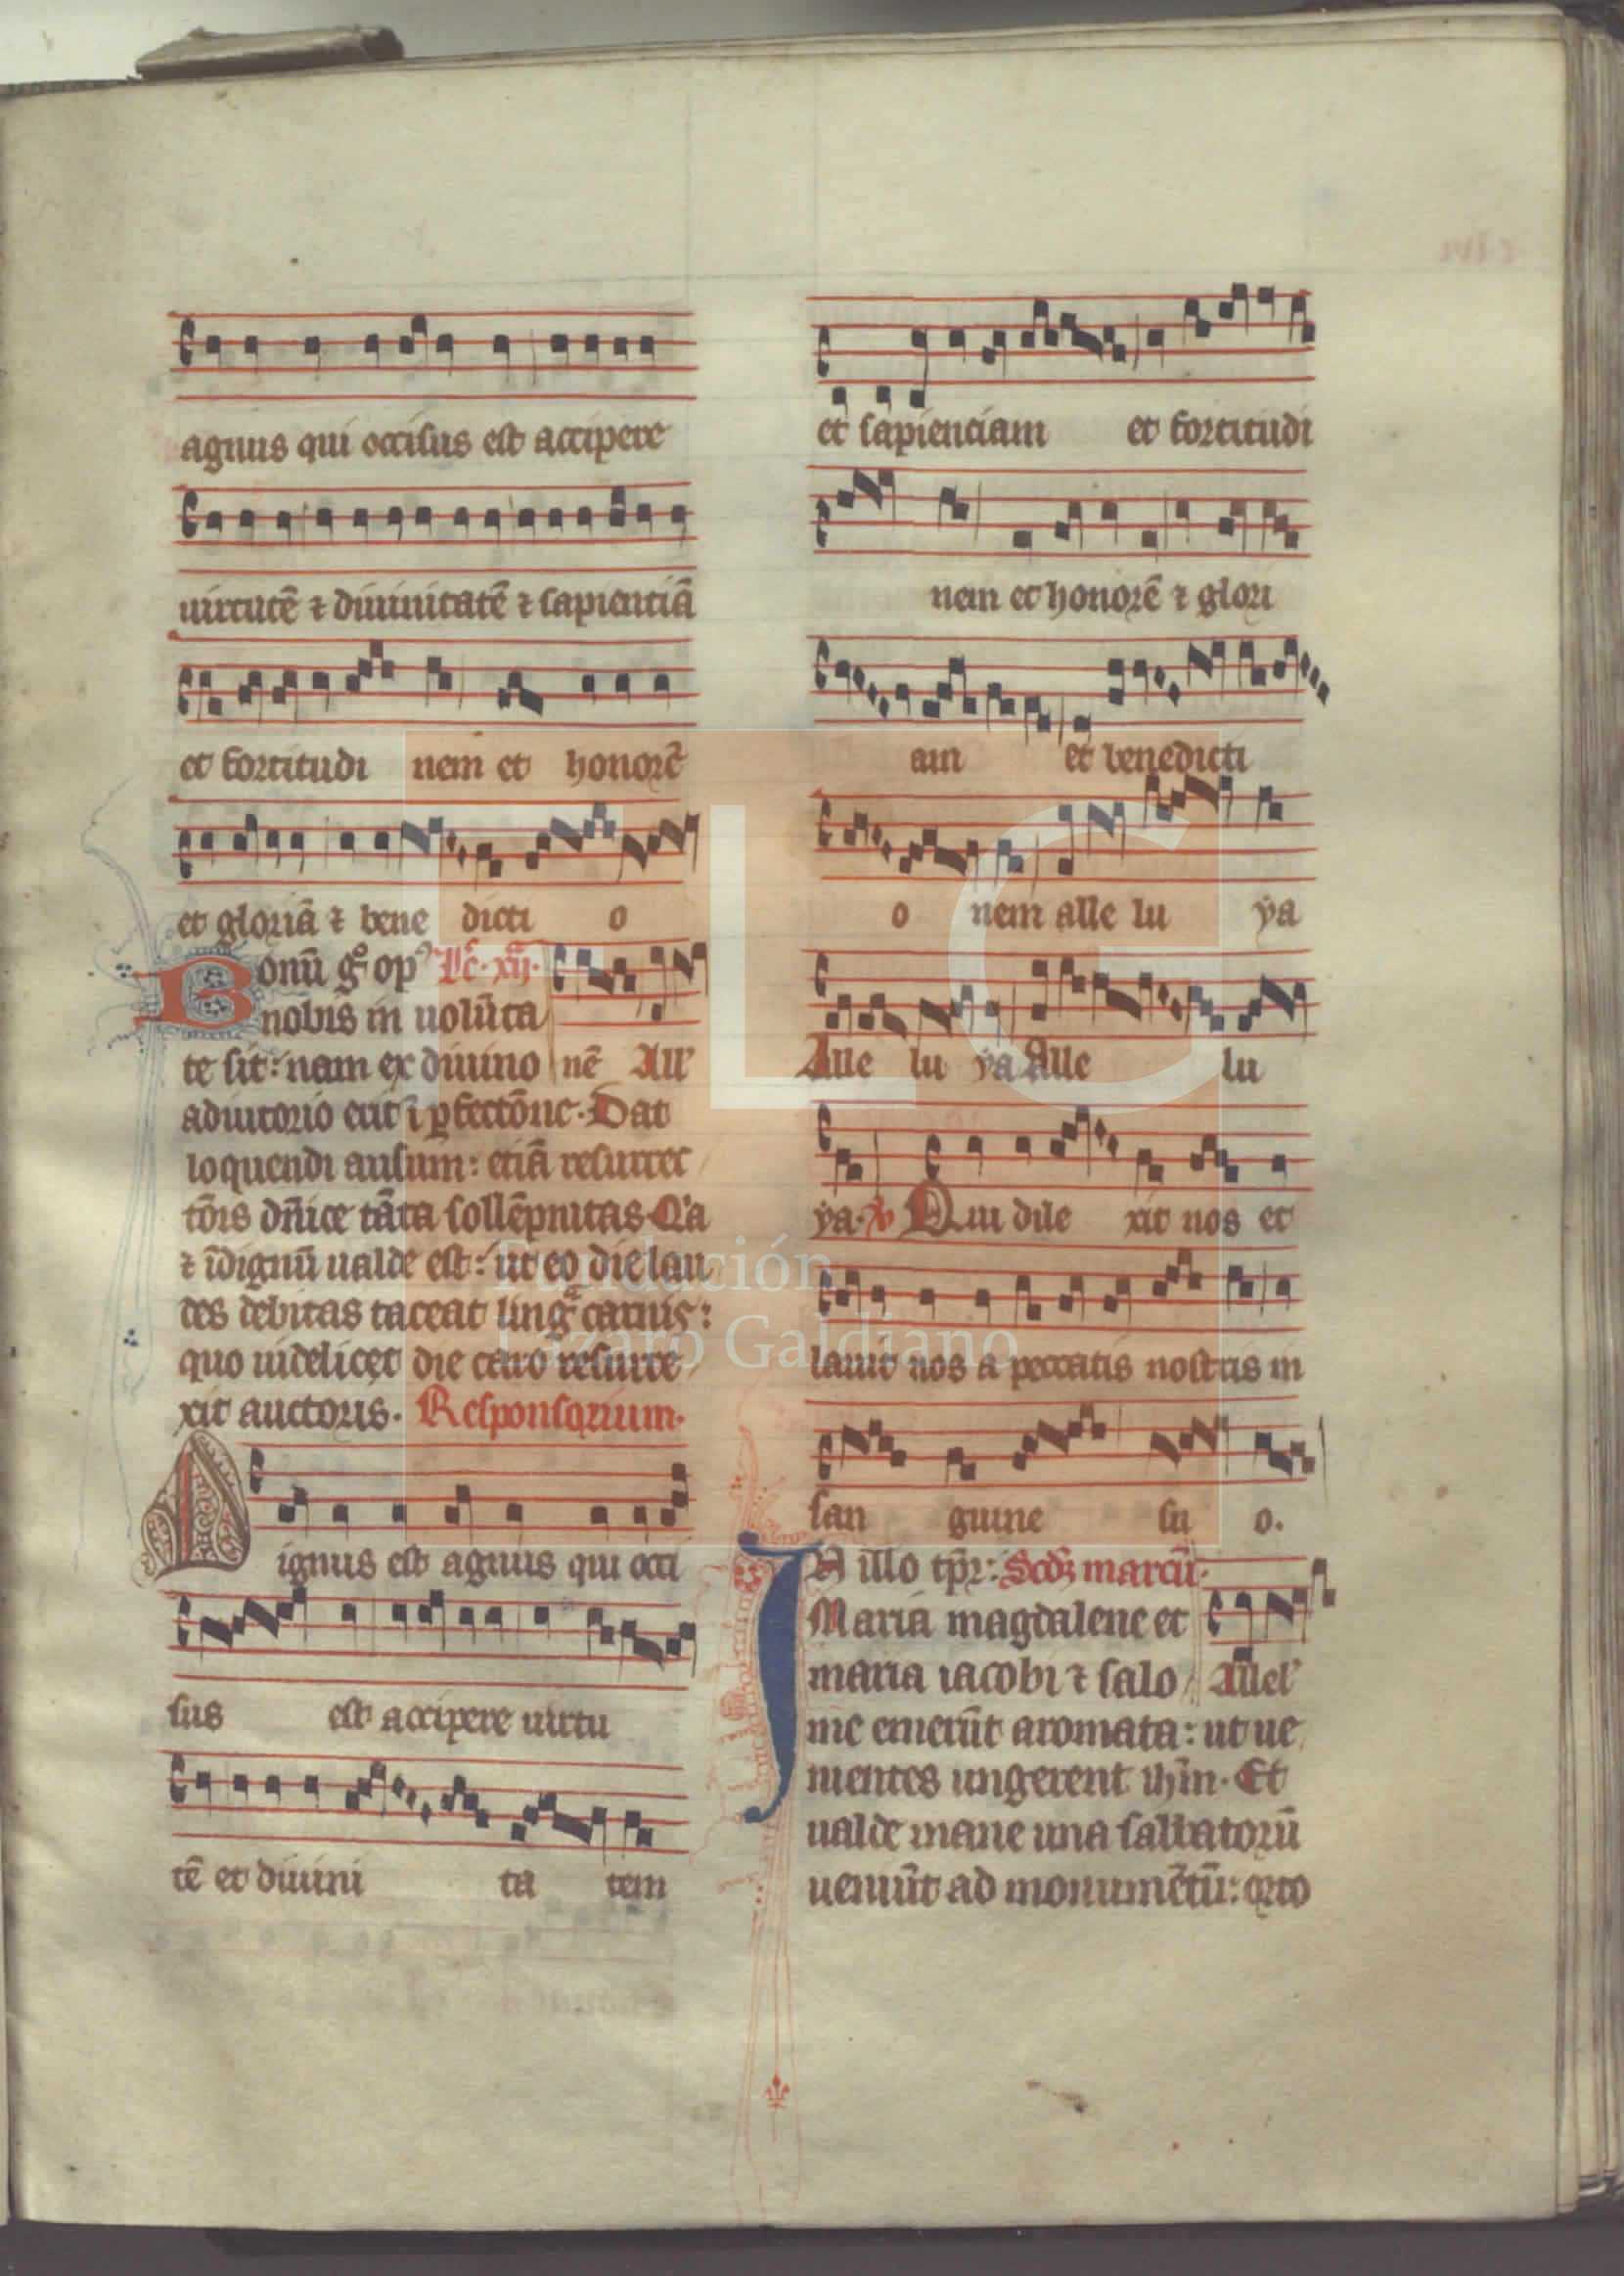 agnus qui occisus est accipere
uirtutē ⁊ diuinitatē ⁊ sapientiā
et fortitudi nem et honorē
et gloriā ⁊ bene dicti o
Bonū gͦ opꝰ Lc̄. xij.
nobis in uolūta
te sit: nam ex diuino nē All'
adiutorio erit ī ꝑfectōne. Dat
loquendi ausum: etiā resurrec
tōis dn̄ice tāta sollēpnitas. Qa
⁊ īdignū ualde est: ut eo die lau
des debitas taceat lingᵃ carnis:
quo uidelicet die caro resurre
xit auctoris. Responsorium.
Dignus est agnus qui occi
sus est accipere uirtu
tē et diuini ta tem
et sapienciam et fortitudi
nem et honorē ⁊ glori
am et benedicti
o nem alle lu ya
Alle lu ya Alle lu
ya. V Qui dile xit nos et
lauit nos a peccatis nostris in
san guine su o.
IN illo tp̄r: Scdꝫ marcū.
Maria magdalene et
maria iacobi ⁊ salo Allel'
me emerūt aromata: ut ue
nientes ungerent ihm̄. Et
ualde mane una sabbatorū
ueniūt ad monumētū: orto
FLG
Fundación
Lázaro Galdiano